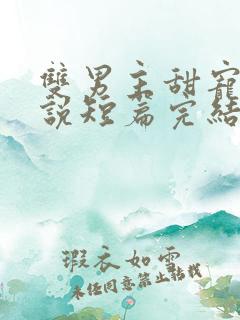 雙男主甜寵
說短篇完結
瑕衣如雪
未經同意禁止轉載